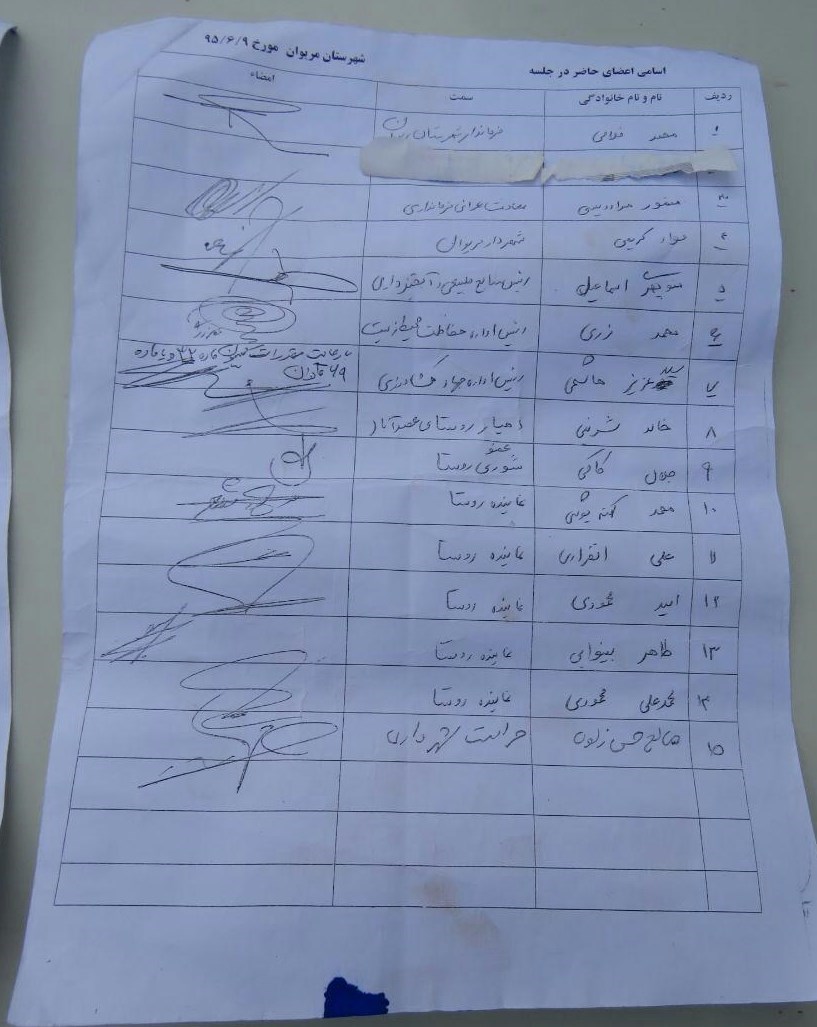 اسامی اعضای حاضر در جلسه شهرستان مریوان مورخ ۹۵/۶/۹
ردیف نام و نام خانوادگی سمت امضاء
۱ محمد فلاحی فرماندار شهرستان مریوان
۳ منصور مرادویسی معاونت عمرانی فرمانداری
۴ جواد کریمی شهردار مریوان
۵ اسماعیل رئیس منابع طبیعی و آبخیزداری
۶ محمد زری رئیس اداره حفاظت محیط زیست
با رعایت مقررات قانون ماده ۳۲ و ماده
۷ سید عزیز هاشمی رئیس اداره جهاد کشاورزی ۶۹ قانون
۸ خالد شریفی دهیار روستای
۹ جلال کاکی عضو شورای روستا
۱۰ کهنه پوشی نماینده روستا
۱۱ علی نماینده روستا
۱۲ امید محمودی نماینده روستا
۱۳ طاهر بینوایی نماینده روستا
۱۴ محمدعلی محمودی نماینده روستا
۱۵ صالح حسن حراست شهرداری